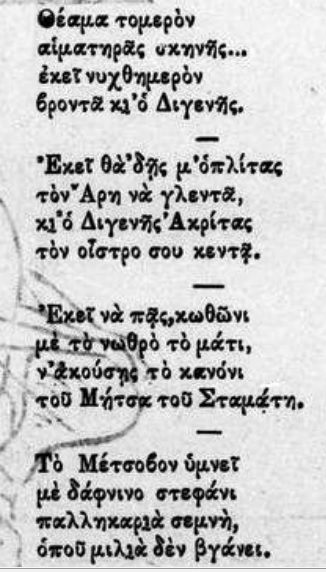 Θέαμα τομερὸν
αἱματηρᾶς σκηνῆς...
ἐκεῖ νυχθημερὸν
βροντᾶ κι' ὁ Διγενῆς.
—
Ἐκεῖ θὰ 'δῇς μ' ὁπλίτας
τὸν Ἄρη νὰ γλεντᾶ,
κι' ὁ Διγενῆς Ἀκρίτας
τὸν οἶστρο σου κεντᾷ.
—
Ἐκεῖ νὰ πᾷς, κωθῶνι
μὲ τὸ νωθρὸ τὸ μάτι,
ν' ἀκούσῃς τὸ κανόνι
τοῦ Μήτσα τοῦ Σταμάτη.
—
Τὸ Μέτσοβον ὑμνεῖ
μὲ δάφνινο στεφάνι
παλληκαριὰ σεμνή,
ὁποῦ μιλιὰ δὲν βγάνει.